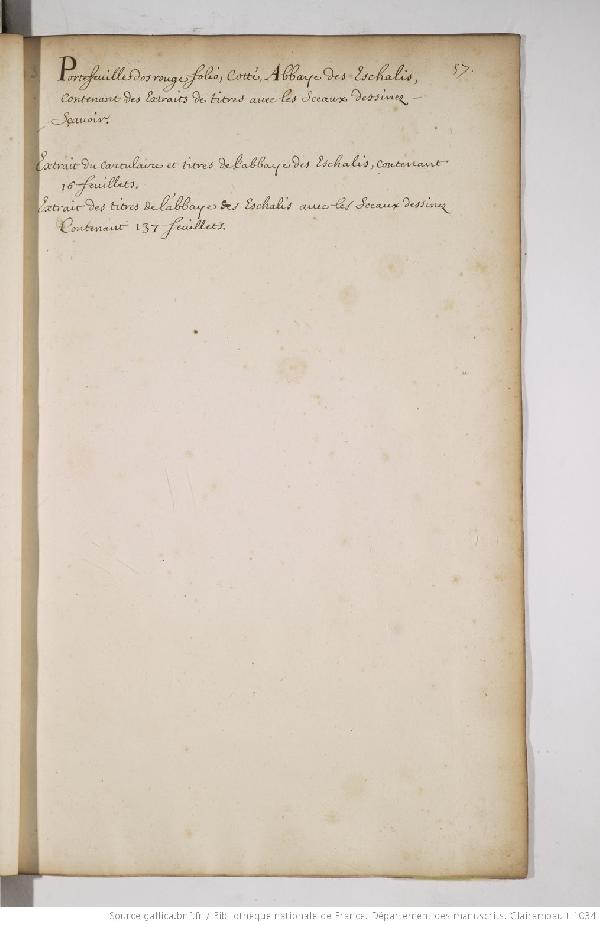 57.
Portefeuille dos rouge folio, Cotté, Abbaye des Eschalis,
Contenant des Extraits de titres auec les Sceaux dessinez
Sçauoir.
Extrait du cartulaire et titres de l'abbaye des Eschalis, contenant
16 feuillets.
Extrait des titres de l'abbaye des Eschalis auec les Sceaux dessinez
Contenant 137 feuillets.
Source gallica.bnf.fr / Bibliothèque nationale de France. Département des manuscrits. Clairambault 1034